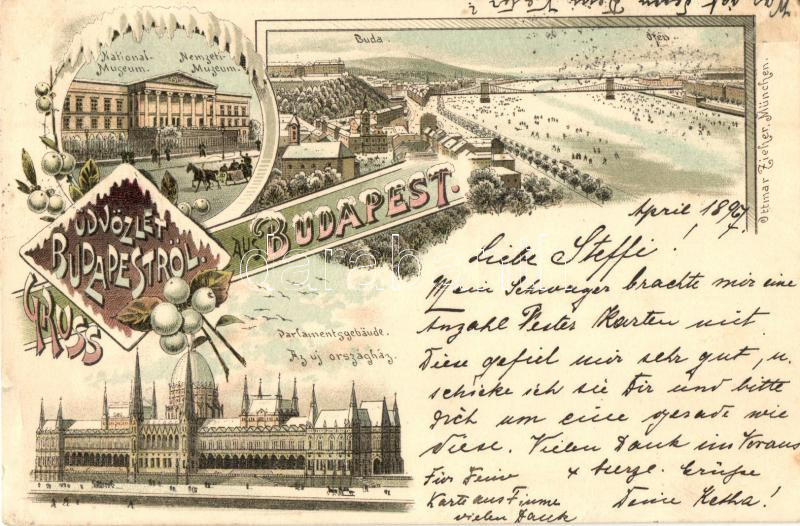 National-
Museum.
Nemzeti-
Múzeum.
Buda.
Ofen.
Ottmar Zieher, München.
ÜDVÖZLET
BUDAPESTRÖL.
GRUSS
AUS BUDAPEST.
darabanth
Parlamentsgebäude.
Az uj országház.
April 1897
Liebe Steffi!
Mein Schwager brachte mir eine
Anzahl Pester Karten mit.
Diese gefiel mir sehr gut, u.
schicke ich sie Dir und bitte
Dich um eine gerade wie
diese. Vielen Dank im Voraus
Für Deine
Karte aus Fiume
vielen Dank
+ herzl. Grüße
Deine Ketha!